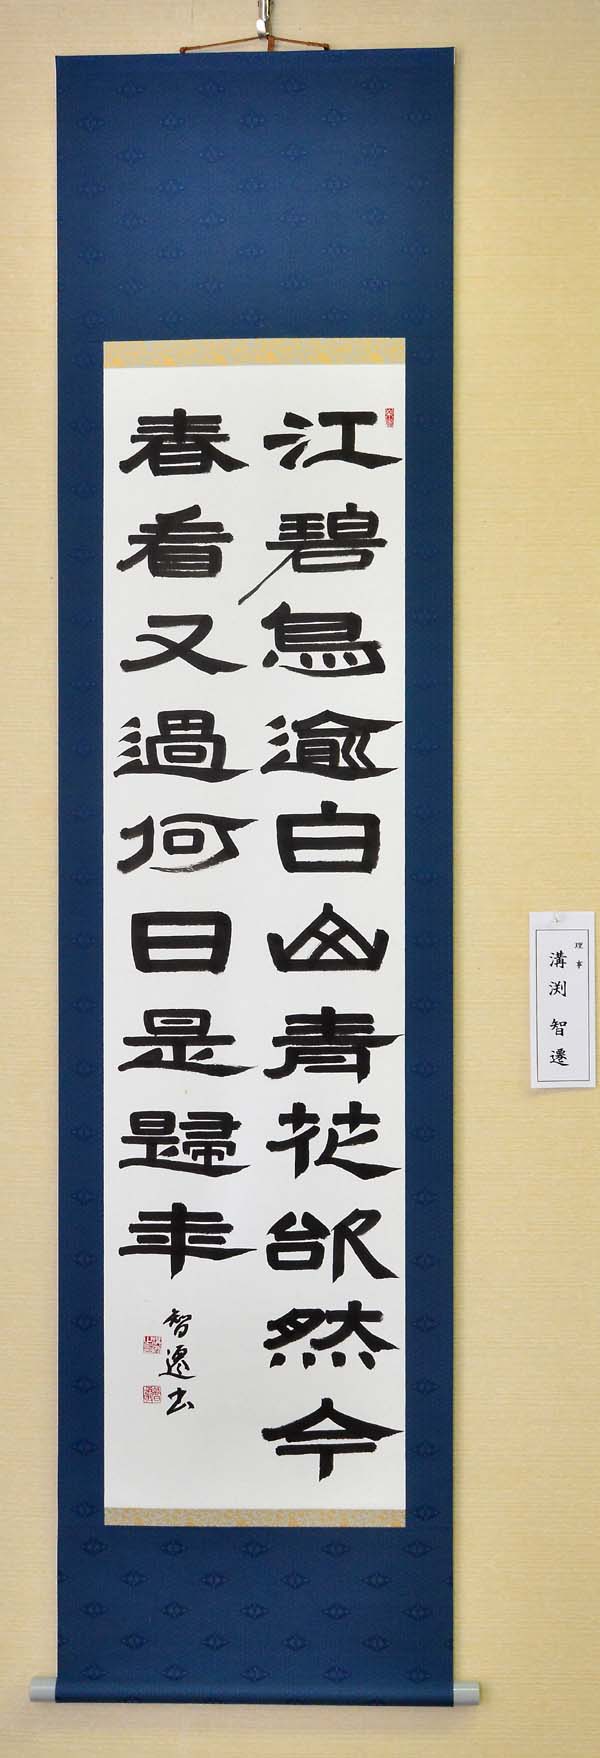 江碧鳥逾白山青花欲然今
春看又過何日是歸年
智遷書
理事
溝渕 智遷